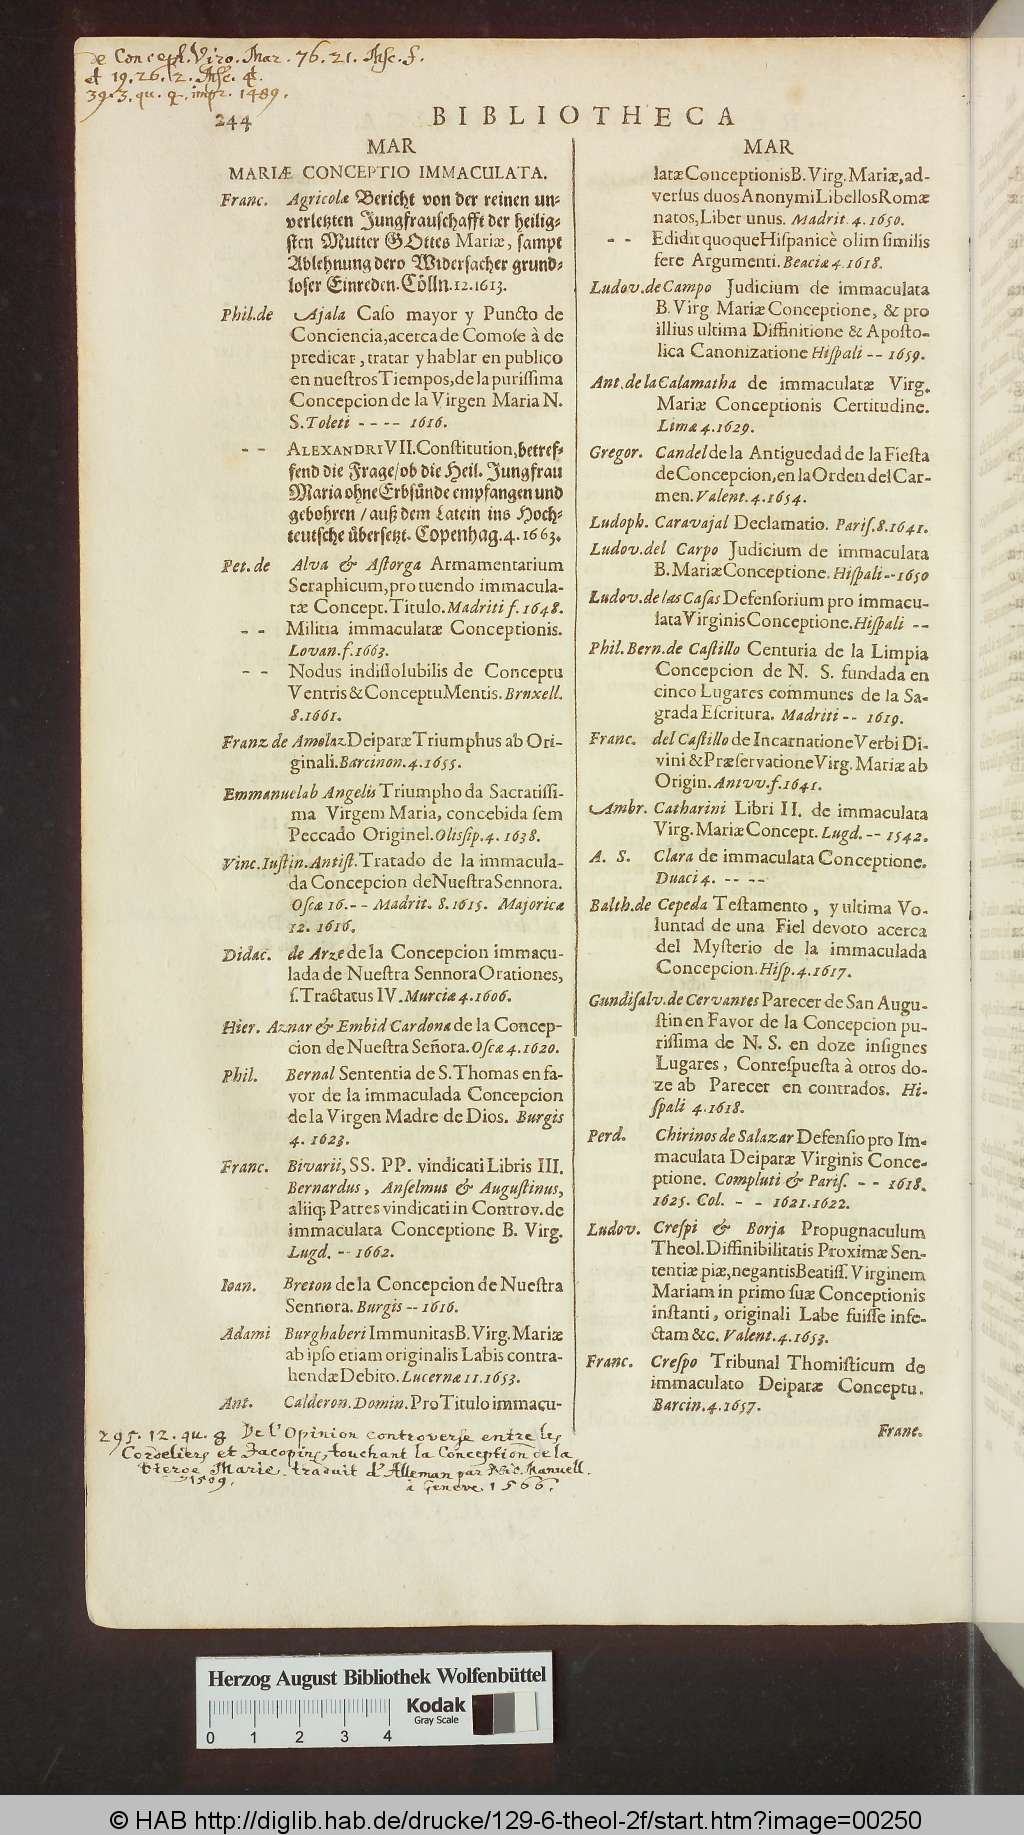 de Concept. Virg. Mar. 76. 21. Msc. f.
et 19. 26. 2. Msc. 4.
39. 3. qu. 4. impr. 1489.
244
BIBLIOTHECA
MAR
MARIÆ CONCEPTIO IMMACULATA.
Franc. Agricolæ Bericht von der reinen un-
verletzten Jungfrauschafft der heilig-
sten Mutter GOttes Mariæ, sampt
Ablehnung dero Widersacher grund-
loser Einreden. Cölln. 12. 1613.
Phil. de Ajala Caso mayor y Puncto de
Conciencia, acerca de Comose à de
predicar, tratar y hablar en publico
en nuestros Tiempos, de la purissima
Concepcion de la Virgen Maria N.
S. Toleti - - - - 1616.
- - ALEXANDRI VII. Constitution, betref-
fend die Frage/ ob die Heil. Jungfrau
Maria ohne Erbsünde empfangen und
gebohren / auß dem Latein ins Hoch-
teutsche übersetzt. Copenhag. 4. 1663.
Pet. de Alva & Astorga Armamentarium
Seraphicum, pro tuendo immacula-
tæ Concept. Titulo. Madriti f. 1648.
- - Militia immaculatæ Conceptionis.
Lovan. f. 1663.
- - Nodus indissolubilis de Conceptu
Ventris & Conceptu Mentis. Bruxell.
8. 1661.
Franz de Amolaz Deiparæ Triumphus ab Ori-
ginali. Barcinon. 4. 1655.
Emmanuelab Angelis Triumpho da Sacratissi-
ma Virgem Maria, concebida sem
Peccado Originel. Olissip. 4. 1638.
Vinc. Iustin. Antist. Tratado de la immacula-
da Concepcion de Nuestra Sennora.
Oscæ 16. - - Madrit. 8. 1615. Majoricæ
12. 1616.
Didac. de Arze de la Concepcion immacu-
lada de Nuestra Sennora Orationes,
s. Tractatus IV. Murciæ 4. 1606.
Hier. Aznar & Embid Cardona de la Concep-
cion de Nuestra Señora. Oscæ 4. 1620.
Phil. Bernal Sententia de S. Thomas en fa-
vor de la immaculada Concepcion
de la Virgen Madre de Dios. Burgis
4. 1623.
Franc. Bivarii, SS. PP. vindicati Libris III.
Bernardus, Anselmus & Augustinus,
aliiq; Patres vindicati in Controv. de
immaculata Conceptione B. Virg.
Lugd. - - 1662.
Ioan. Breton de la Concepcion de Nuestra
Sennora. Burgis -- 1616.
Adami Burghaberi Immunitas B. Virg. Mariæ
ab ipso etiam originalis Labis contra-
hendæ Debito. Lucernæ 11. 1653.
Ant. Calderon. Domin. Pro Titulo immacu-
MAR
latæ Conceptionis B. Virg. Mariæ, ad-
versus duos Anonymi Libellos Romæ
natos, Liber unus. Madrit 4. 1650.
- - Edidit quoque Hispanicè olim similis
fere Argumenti. Beaciæ 4. 1618.
Ludov. de Campo Judicium de immaculata
B. Virg. Mariæ Conceptione, & pro
illius ultima Diffinitione & Aposto-
lica Canonizatione Hispali -- 1659.
Ant. de la Calamatha de immaculatæ Virg.
Mariæ Conceptionis Certitudine.
Limæ 4. 1629.
Gregor. Candel de la Antiguedad de la Fiesta
de Concepcion, en la Orden del Car-
men. Valent. 4. 1654.
Ludoph. Caravajal Declamatio. Paris. 8. 1641.
Ludov. del Carpo Judicium de immaculata
B. Mariæ Conceptione. Hispali -- 1650
Ludov. de las Casas Defensorium pro immacu-
lata Virginis Conceptione. Hispali --
Phil. Bern. de Castillo Centuria de la Limpia
Concepcion de N. S. fundada en
cinco Lugares communes de la Sa-
grada Escritura. Madriti -- 1619.
Franc. del Castillo de Incarnatione Verbi Di-
vini & Præservatione Virg. Mariæ ab
Origin. Antvv. f. 1641.
Ambr. Catharini Libri II. de immaculata
Virg. Mariæ Concept. Lugd. -- 1542.
A. S. Clara de immaculata Conceptione.
Duaci 4. -- --
Balth. de Cepeda Testamento, y ultima Vo-
luntad de una Fiel devoto acerca
del Mysterio de la immaculada
Concepcion. Hisp. 4. 1617.
Gundisalv. de Cervantes Parecer de San Augu-
stin en Favor de la Concepcion pu-
rissima de N. S. en doze insignes
Lugares, Conrespuesta à otros do-
ze ab Parecer en contrados. Hi-
spali 4. 1618.
Perd. Chirinos de Salazar Defensio pro Im-
maculata Deiparæ Virginis Conce-
ptione. Compluti & Paris. - - 1618.
1625. Col. - - 1621. 1622.
Ludov. Crespi & Borja Propugnaculum
Theol. Diffinibilitatis Proximæ Sen-
tentiæ piæ, negantis Beatiss. Virginem
Mariam in primo suæ Conceptionis
instanti, originali Labe fuisse infe-
ctam &c. Valent. 4. 1653.
Franc. Crespo Tribunal Thomisticum de
immaculato Deiparæ Conceptu.
Barcin. 4. 1657.
Franc.
295. 12. qu. 8 De l'Opinion controverse entre les
Cordeliers et Jacopins, touchant la Conception de la
Vierge Marie. traduit d'Alleman par Nic. Manuell.
1509. à Geneve. 1566.
Herzog August Bibliothek Wolfenbüttel
Kodak
Gray Scale
0 1 2 3 4
© HAB http://diglib.hab.de/drucke/129-6-theol-2f/start.htm?image=00250